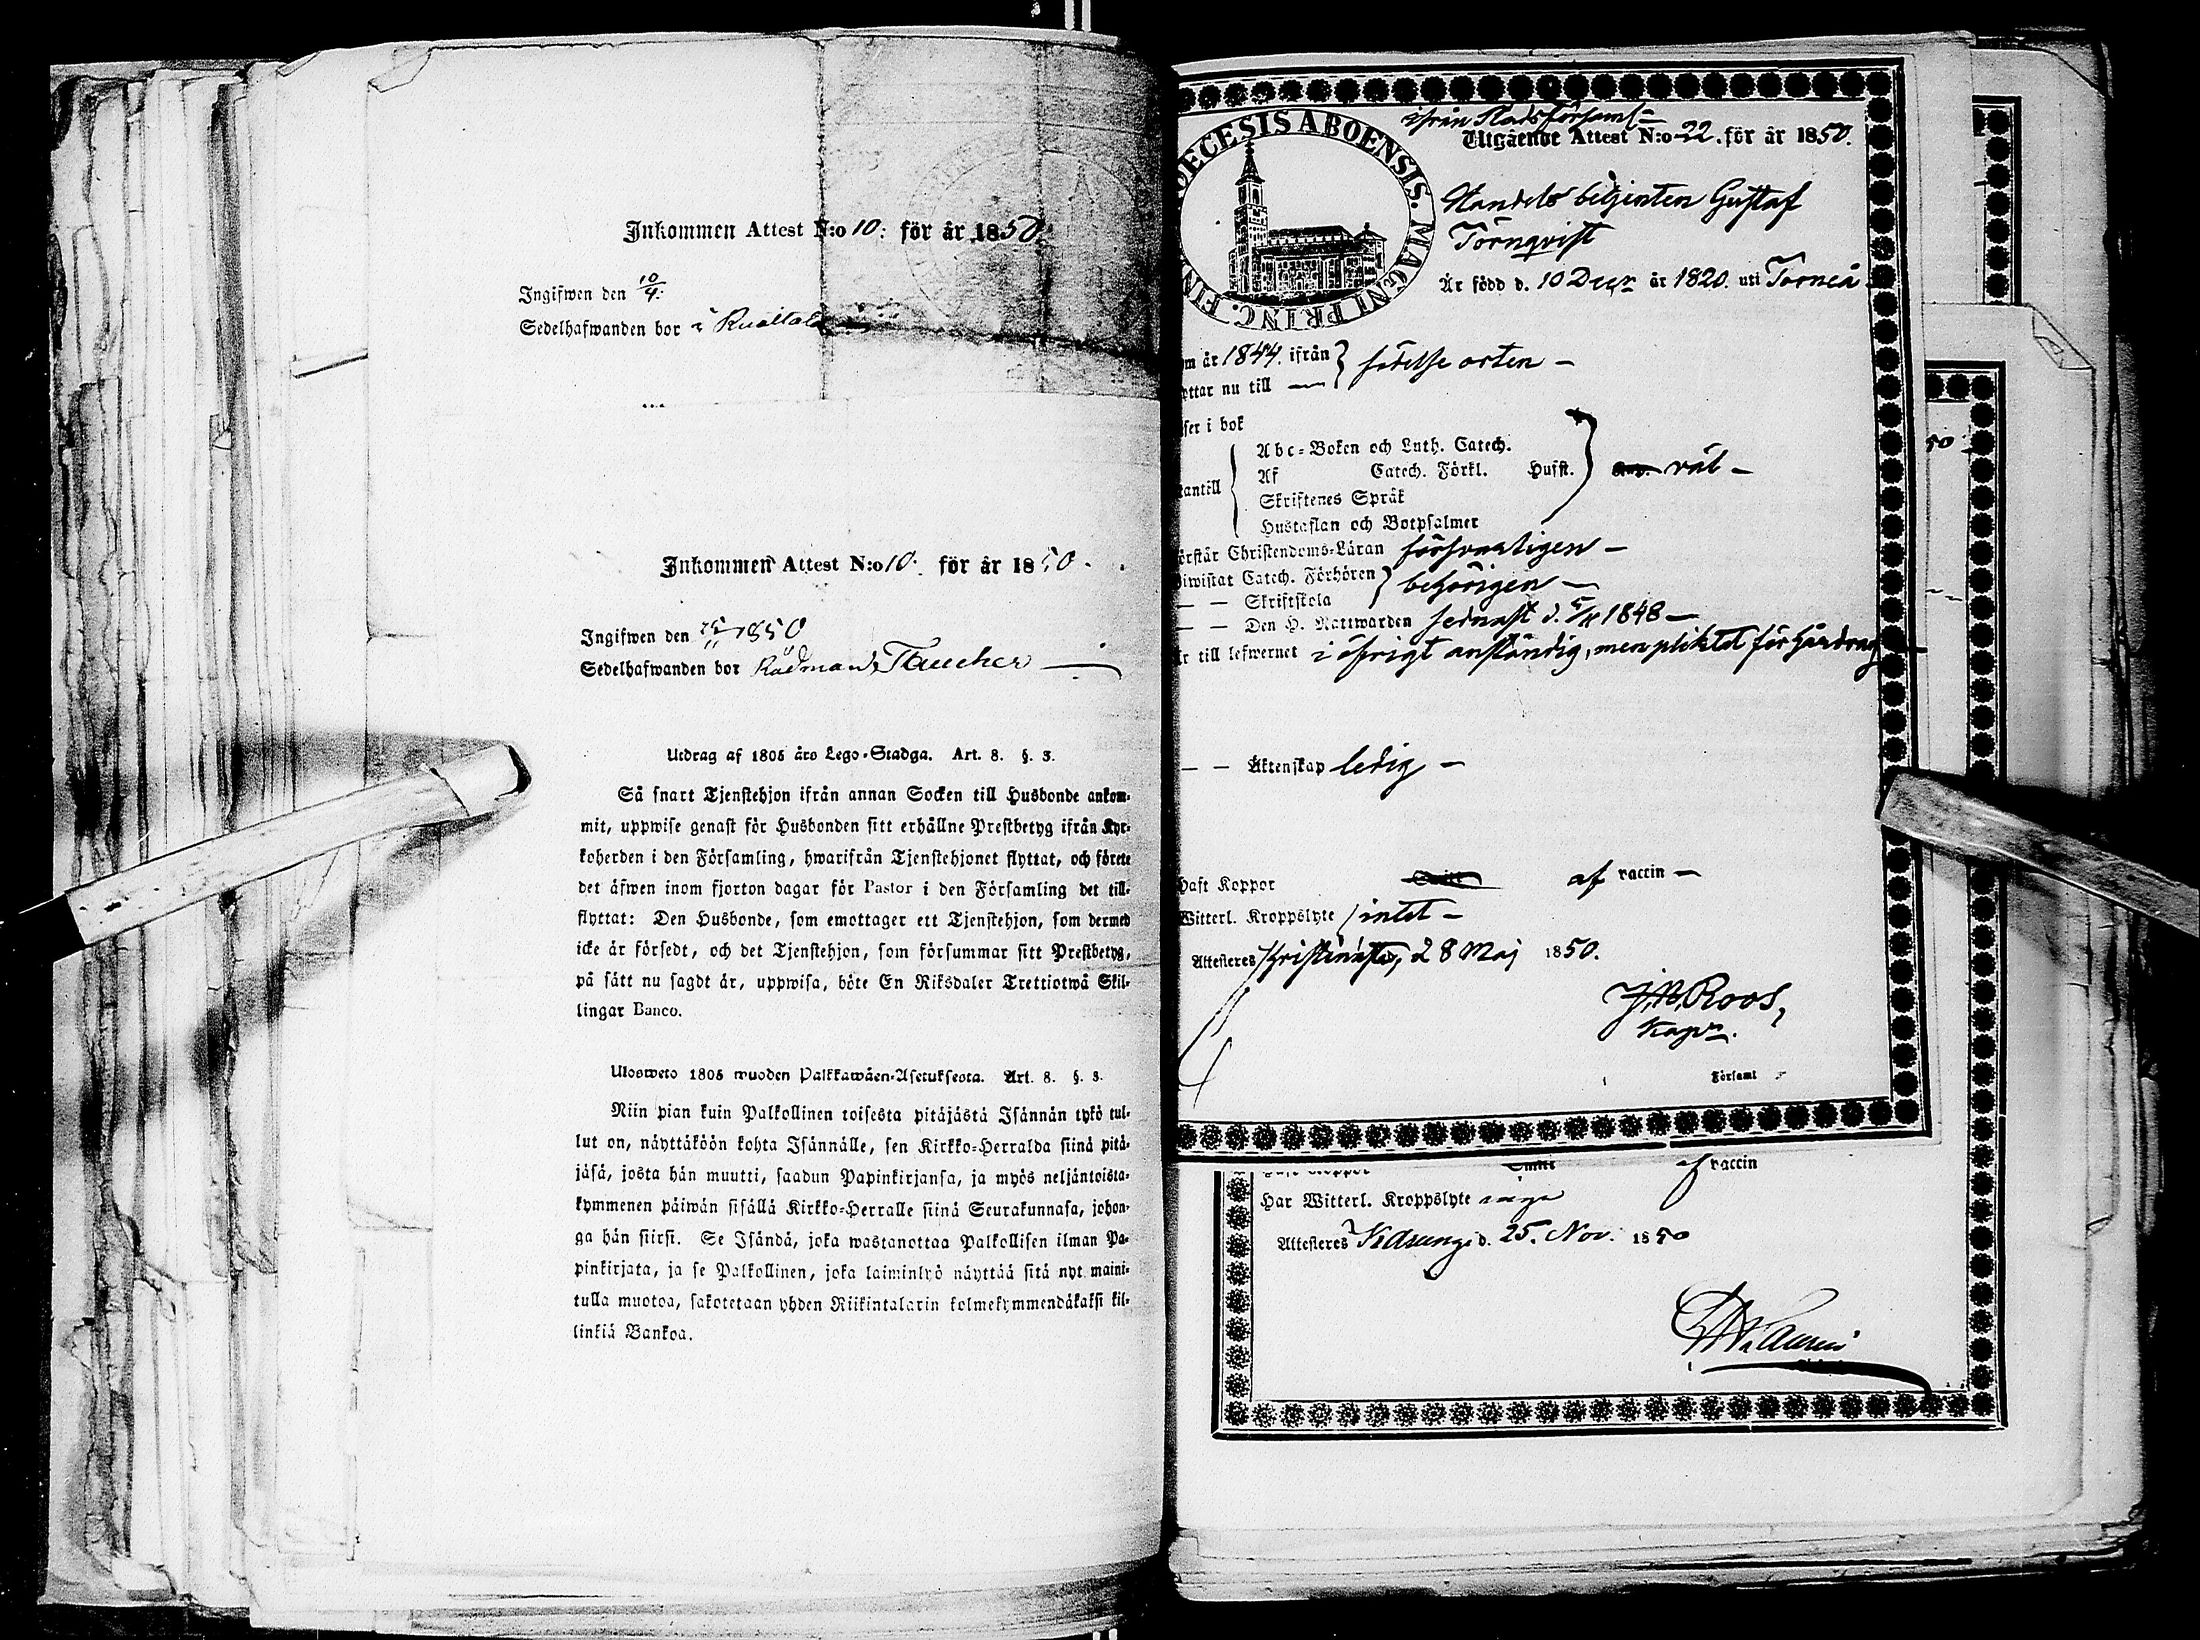 Inkommen Attest N:o 10: för år 1850.
Ingifwen den 10/4.
Sedelhafwanden bor i
Inkommen Attest N:o 10. för år 1850.
Ingifwen den 25/11 1850
Sedelhafwanden bor Rådman Flaucher
Utdrag af 1805 års Lego-Stadga. Art. 8. §. 3.
Så snart Tjenstehjon ifrån annan Socken till Husbonde ankom-
mit, uppwise genast för Husbonden sitt erhållne Prestbetyg ifrån Kyr-
koherden i den Församling, hwarifrån Tjenstehjonet flyttat, och förete
det äfwen inom fjorton dagar för Pastor i den Församling det till-
flyttat: Den Husbonde, som emottager ett Tjenstehjon, som dermed
icke är försedt, och det Tjenstehjon, som försummar sitt Prestbetyg,
på sätt nu sagdt är, uppwisa, böte En Riksdaler Trettiotwå Skil-
lingar Banco.
Ulosweto 1805 wuoden Palkkawäen-Asetuksesta. Art. 8. §. 3.
Niin pian kuin Palkollinen toisesta pitäjästä Isännän tykö tul-
lut on, näyttäköön kohta Isännälle, sen Kirkko-Herralda siinä pitä-
jäsä, josta hän muutti, saadun Papinkirjansa, ja myös neljäntoista-
kymmenen päiwän sisällä Kirkko-Herralle siinä Seurakunnasa, johon-
ga hän siirsi. Se Isändä, joka wastanottaa Palkollisen ilman Pa-
pinkirjata, ja se Palkollinen, joka laiminlyö näyttää sitä nyt maini-
tulla muotoa, sakotetaan yhden Riikintalarin kolmekymmendäkaksi kil-
linkiä Bankoa.
ECESIS ABOENSIS. MAGNI PRINC. FIN
ifrån Stadsförsaml
Utgående Attest N:o 22. för år 1850.
Handels betjenten Gustaf
Törnqvist
Är född d. 10 Decr år 1820. uti Torneå
m år 1844. ifrån } födelse orten –
ttar nu till —
ser i bok
Abc-Boken och Luth. Catech.
Af Catech. Förkl. Husst. } väl –
tantill
Skriftenes Språk
Hustaflan och Botpsalmer
örstår Christendoms-Läran försvarligen –
iwistat Catech. Förhören } behörigen –
— — Skriftskola
— — Den H. Nattwarden sednast d. 5/11 1848 –
r till lefwernet i öfrigt anständig, men pliktat för hårdrag
— — Äktenskap ledig –
haft Koppor af vaccin –
Witterl. Kroppslyte intet –
Attesteres Kristinestad, 28 Maj 1850.
J. M. Roos,
Kapn.
Församl
af vaccin
Har Witterl. Kroppslyte inga
Attesteres Karungi d. 25. Nov. 1850